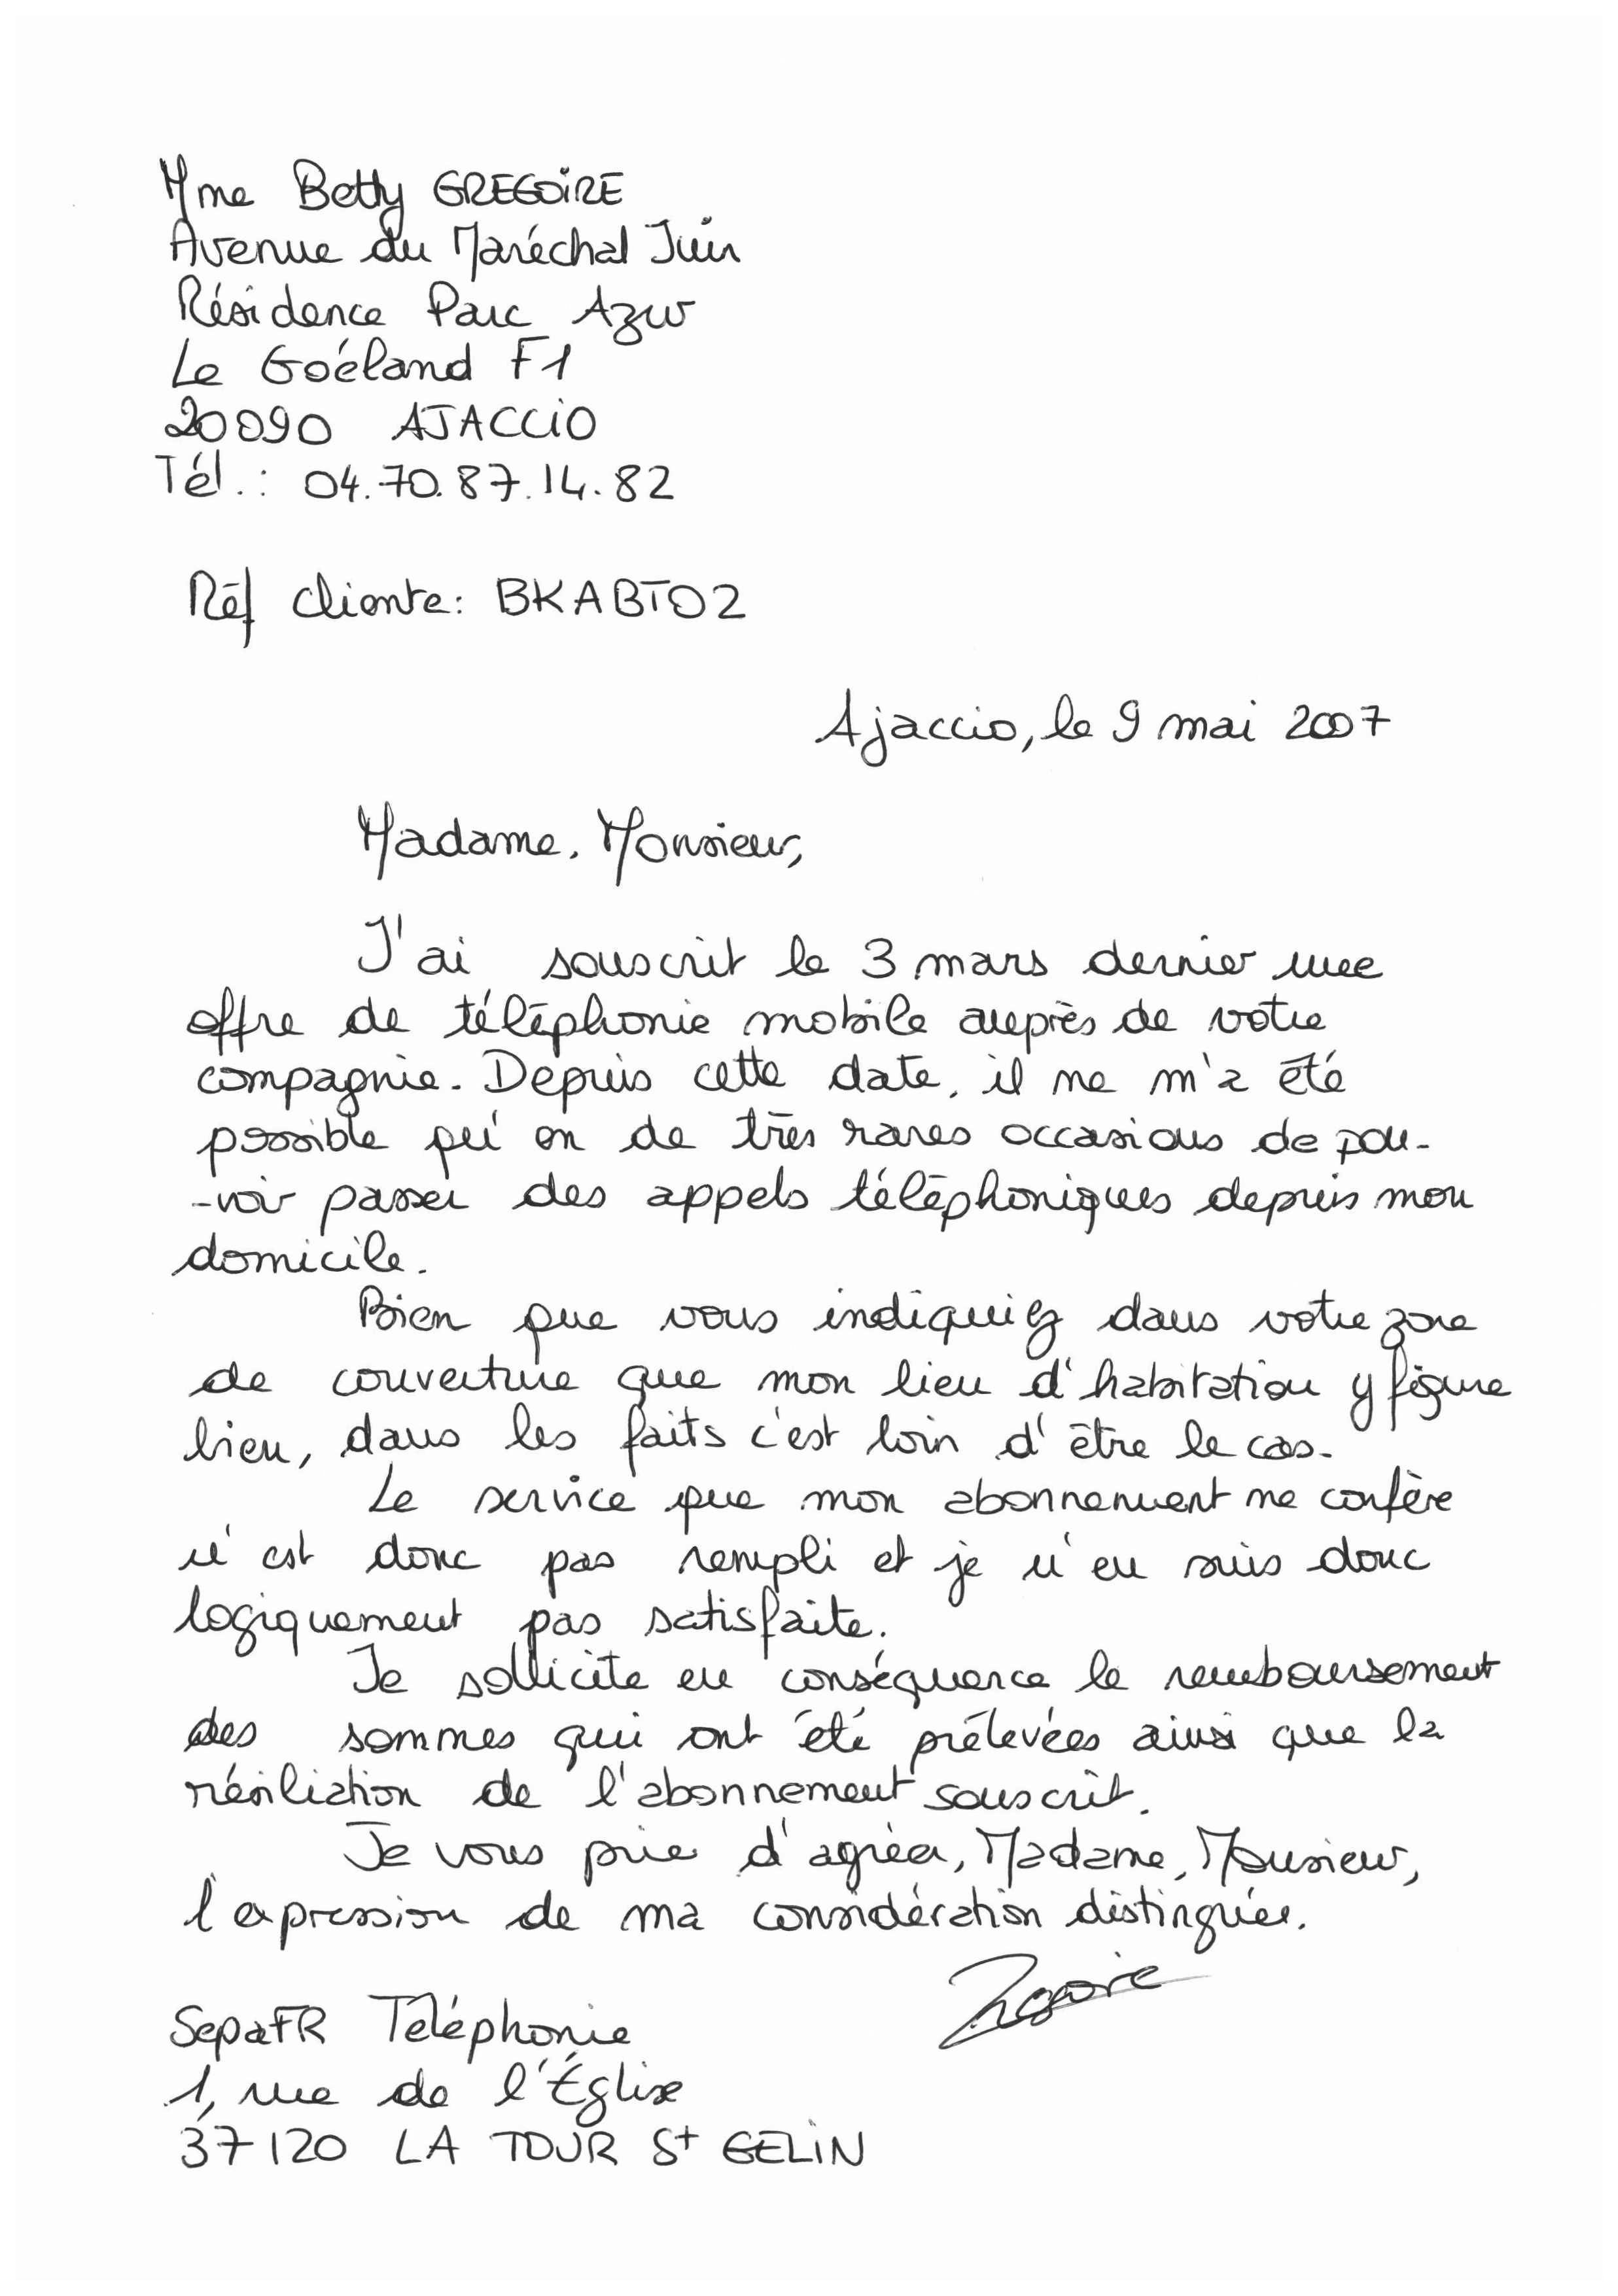 Mme Betty GREGOIRE
Avenue du Maréchal Juin
Résidence Parc Azur
Le Goéland F1
20090 AJACCIO
Tél.: 04.70.87.14.82
Réf cliente: BKABT02
Ajaccio, le 9 mai 2007
Madame, Monsieur,
J'ai souscrit le 3 mars dernier une
offre de téléphonie mobile auprès de votre
compagnie. Depuis cette date, il ne m'a été
possible qu'en de très rares occasions de pou-
-voir passer des appels téléphoniques depuis mon
domicile.
Bien que vous indiquiez dans votre zone
de couverture que mon lieu d'habitation y figure
bien, dans les faits c'est loin d'être le cas.
Le service que mon abonnement me confère
n'est donc pas rempli et je n'en suis donc
logiquement pas satisfaite.
Je sollicite en conséquence le remboursement
des sommes qui ont été prélevées ainsi que la
résiliation de l'abonnement souscrit.
Je vous prie d'agréer, Madame, Monsieur,
l'expression de ma considération distinguée.
SepaFR Téléphonie
1, rue de l'Église
37120 LA TOUR St GELIN